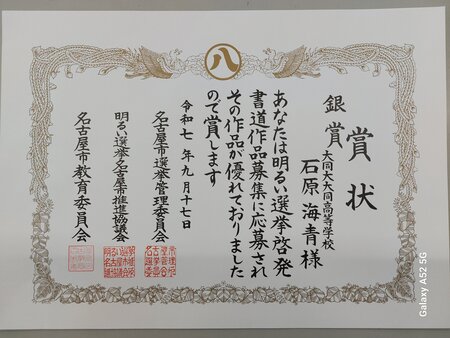 八
賞状
銀賞
大同大大同高等学校
石原海青様
あなたは明るい選挙啓発
書道作品募集に応募され
その作品が優れておりました
ので賞します
令和七年九月十七日
名古屋市選挙管理委員会
明るい選挙名古屋市推進協議会
名古屋市教育委員会
Galaxy A52 5G